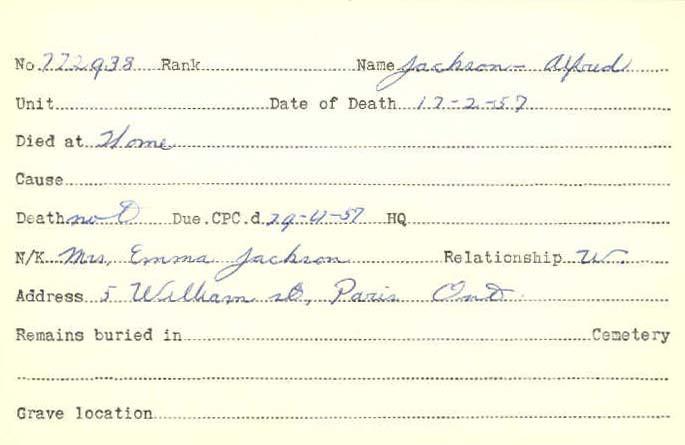 No. 772938 Rank Name Jackson - Alfred
Unit Date of Death 17-2-57
Died at Home
Cause
Death not Due. CPC.d 29-4-57 HQ
N/K Mrs. Emma Jackson Relationship W.
Address 5 William St, Paris Ont.
Remains buried in Cemetery
Grave location